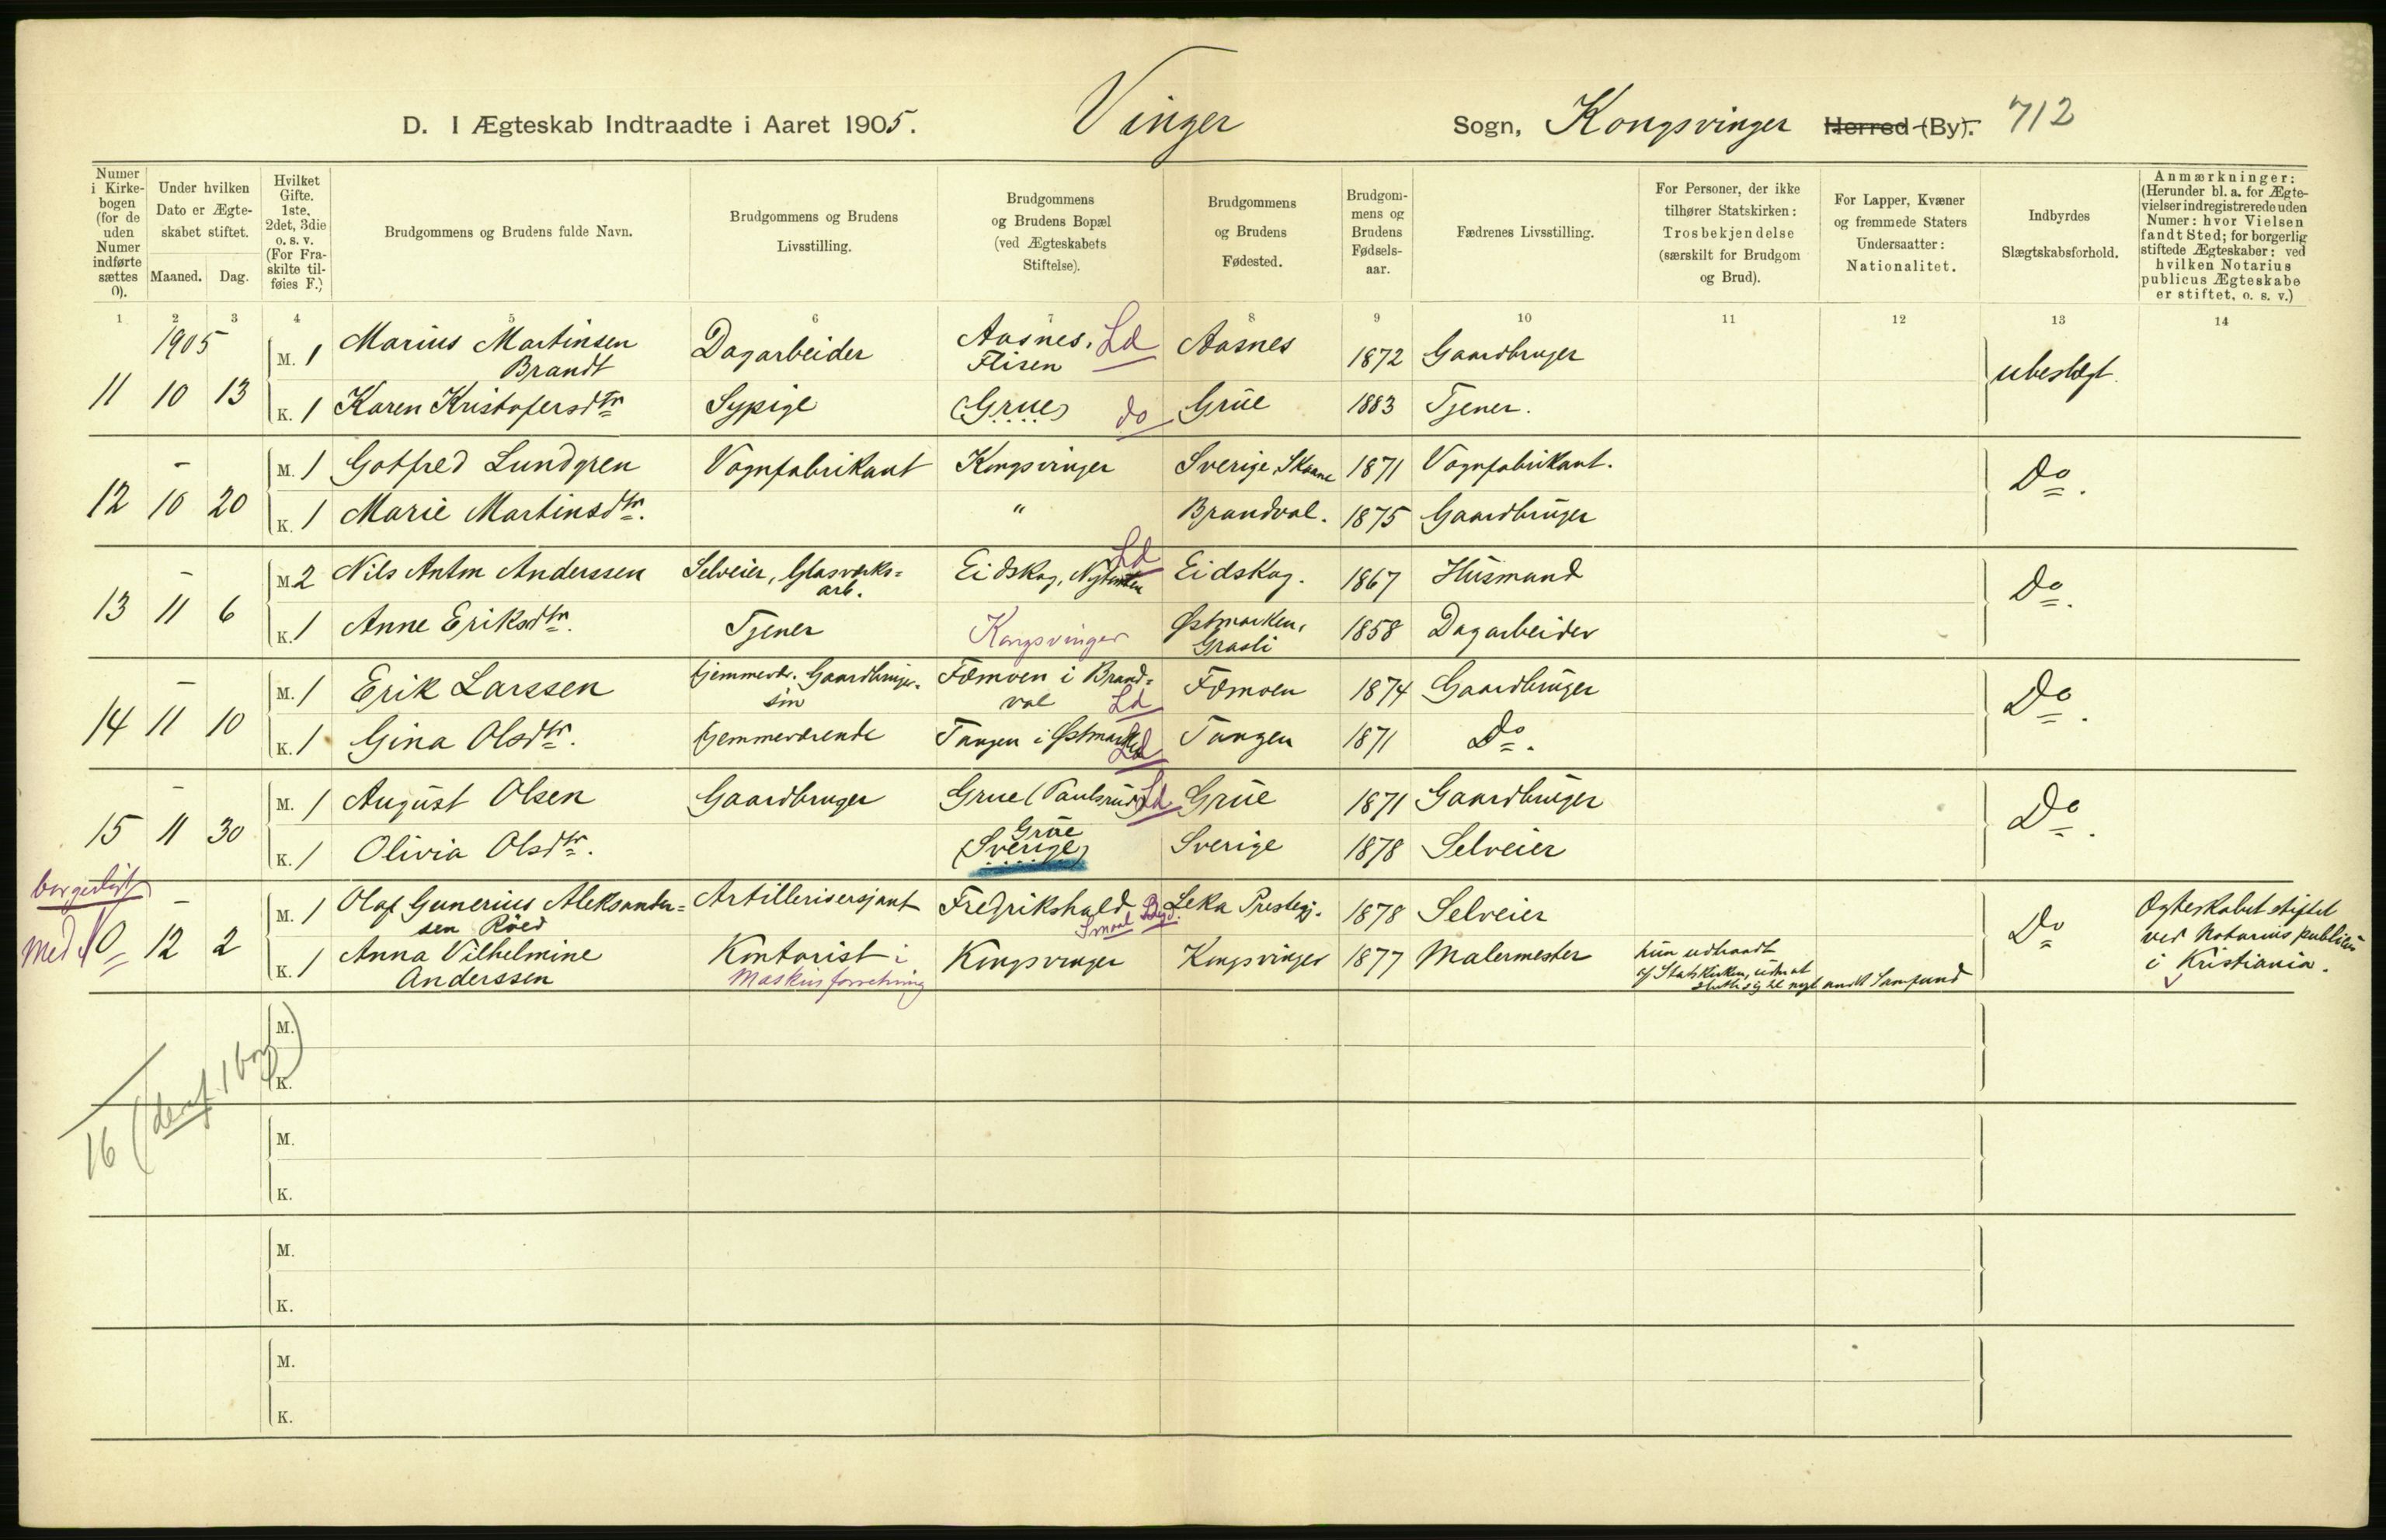 D. I Ægteskab Indtraadte i Aaret 1905. Vinger Sogn, Kongsvinger Herred (By). 712
Numer i Kirkebogen (for de uden Numer indførte sættes 0).
Under hvilken Dato er Ægteskabet stiftet.
Maaned. Dag.
Hvilket Gifte. 1ste, 2det, 3die o. s. v. (For Fraskilte tilføies F.)
Brudgommens og Brudens fulde Navn.
Brudgommens og Brudens Livsstilling.
Brudgommens og Brudens Bopæl (ved Ægteskabets Stiftelse).
Brudgommens og Brudens Fødested.
Brudgommens og Brudens Fødselsaar.
Fædrenes Livsstilling.
For Personer, der ikke tilhører Statskirken: Trosbekjendelse (særskilt for Brudgom og Brud).
For Lapper, Kvæner og fremmede Staters Undersaatter: Nationalitet.
Indbyrdes Slægtskabsforhold.
Anmærkninger: (Herunder bl. a. for Ægtevielser indregistrerede uden Numer: hvor Vielsen fandt Sted; for borgerlig stiftede Ægteskaber: ved hvilken Notarius publicus Ægteskabe er stiftet, o. s. v.)
1 2 3 4 5 6 7 8 9 10 11 12 13 14
1905
M. 1 Marius Martinsen Brandt Dagarbeider Aasnes, Flisen Ld Aasnes 1872 Gaardbruger ubeslægt.
11 10 13
K. 1 Karen Kristofersdtr Sypige (Grue) do Grue 1883 Tjener.
M. 1 Gotfred Lundgren Vognfabrikant Kongsvinger Sverige, Skaane 1871 Vognfabrikant. Do.
12 10 20
K. 1 Marie Martinsdtr. " Brandval. 1875 Gaardbruger
M. 2 Nils Anton Anderssen Selveier, Glasverks= arb. Eidskog, Ld Eidskog. 1867 Husmand Do.
13 11 6
K. 1 Anne Eriksdtr. Tjener Kongsvinger Østmarken, Grasli 1858 Dagarbeider
M. 1 Erik Larssen hjemmevær. Gaardbruger- søn Fæmoen i Brand= val Ld Fæmoen 1874 Gaardbruger Do.
14 11 10
K. 1 Gina Olsdtr. hjemmeværende Tangen i Østmarken Ld Tangen 1871 Do.
M. 1 August Olsen Gaardbruger Grue (Paulsrud) Ld Grue 1871 Gaardbruger Do.
15 11 30
K. 1 Olivia Olsdtr. Grue (Sverige) Sverige 1878 Selveier
borgerligt
M. 1 Olaf Gunerius Aleksander= sen Röed Artillerisersjant Fredrikshald Smaal. Leka Prestegj. 1878 Selveier Do Ægteskabet stiftet
Med 0 12 2 ved Notarius publicus
K. 1 Anna Vilhelmine Anderssen Kontorist i Maskinforretning Kongsvinger Kongsvinger 1877 Malermester hun udtraadt i Kristiania.
af Statskirken, uden at
slutte sig til noget andet Samfund
M.
K.
16 (deraf 1 borg)
M.
K.
M.
K.
M.
K.